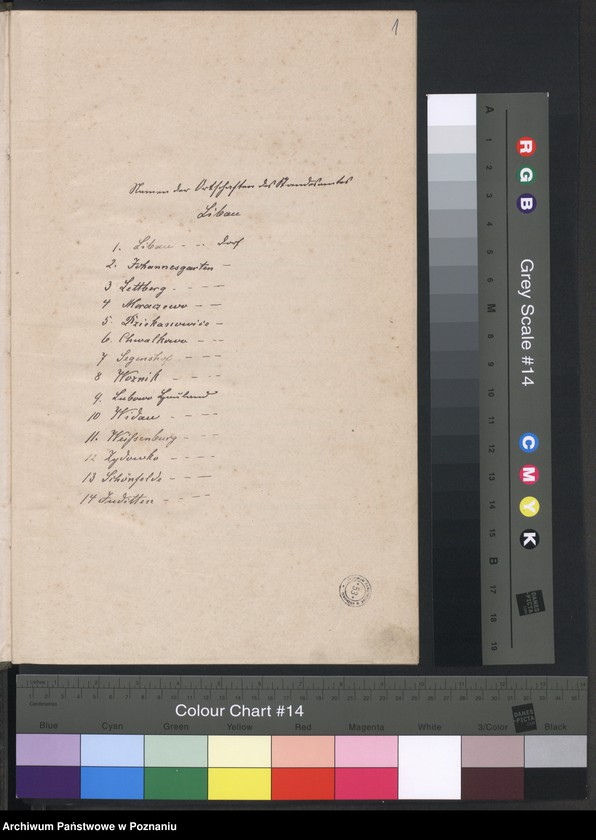 1
Namen der Ortschaften des Standesamtes
Libau
1. Libau - - - Dorf
2. Johannesgarten -
3 Lettberg - - -
4 Moraczewo - -
5. Dziekanowice -
6. Chwalkowo - - -
7 Segenshof - - -
8 Woznik - - - -
9. Lubowo Hauland
10 Widau - - - -
11. Weissenburg - - -
12 Zydowko - - - -
13 Schönfelde - - -
14 Juditten - - -
53
A
1
2
3
4
5
6
M
8
9
10
11
12
13
14
15
B
17
18
19
R
G
B
Grey Scale #14
C
M
Y
K
DANES
PICTA
Colour Chart #14
Blue Cyan Green Yellow Red Magenta White 3/Color Black
DANES
PICTA
Archiwum Państwowe w Poznaniu